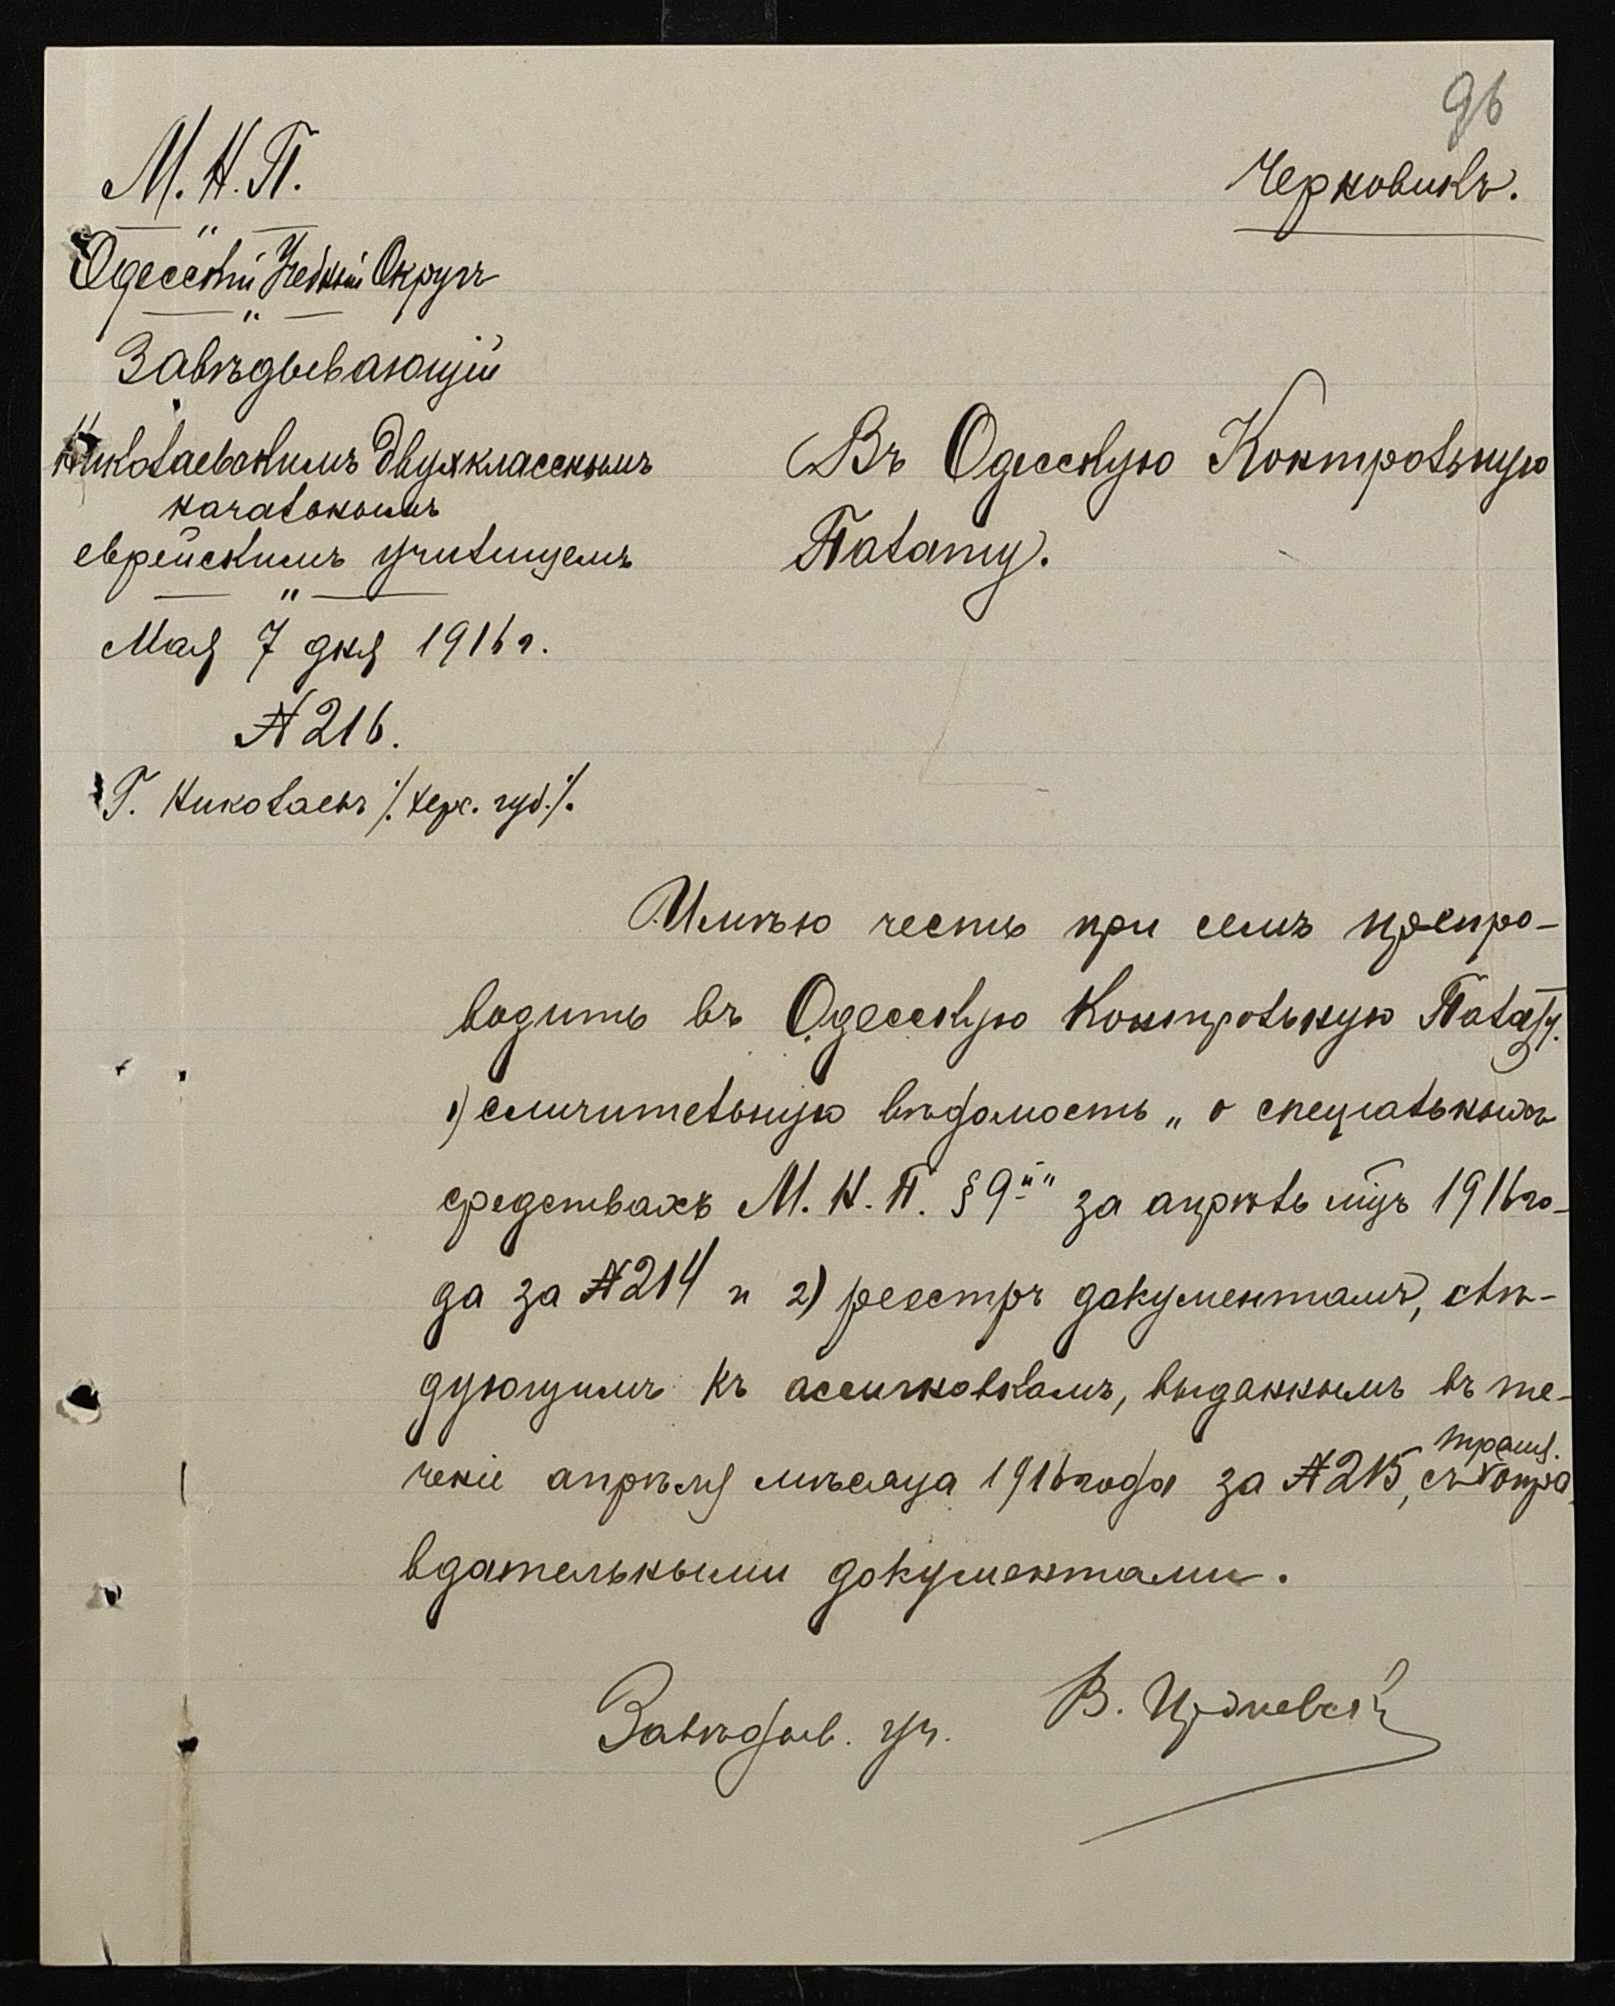 96
Черновикъ.
М. Н. П.
Одесскій Учебный Округъ
Завѣдывающій
Николаевскимъ двухкласснымъ
начальнымъ
еврейскимъ училищемъ
Мая 7 дня 1916 г.
№ 216.
Г. Николаевъ ./. Херс. губ. ./.
Въ Одесскую Контрольную
Палату.
Имѣю честь при семъ препро-
водить въ Одесскую Контрольную Палату.
1) сличительную вѣдомость „ о спеціальныхъ
средствахъ М. Н. П. § 9й" за апрѣль м-цъ 1916 го-
да за № 214 и 2) реестръ документамъ, слѣ-
дующимъ къ ассигновкамъ, выданнымъ въ те-
ченіе апрѣля мѣсяца 1916 года за № 215, съ опра
вдательными документами.
Завѣдыв. уч. В.